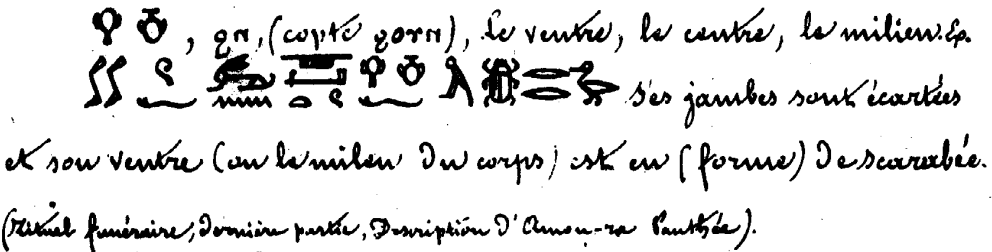 , ϩⲛ, (copte ϩⲟⲩⲛ), le ventre, le centre, le milieu. Ex.
Ses jambes sont écartées
et son ventre (ou le milieu du corps) est en (forme) de scarabée.
(Rituel funéraire, dernière partie, Description d'Amon-ra Panthée).